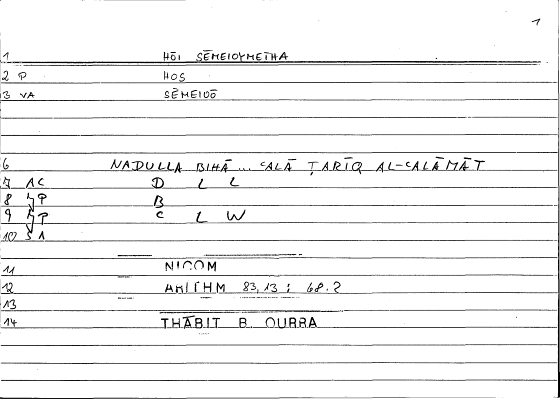 1
1 HŌI SĒMEIOYMETHA
2 P HOS
3 VA SĒMEIOŌ
6 NADULLA BIHĀ ... CALĀ ṬARĪQ AL-CALĀMĀT
7 AC D L L
8 P B
9 P C L W
10 A
11 NICOM
12 ARITHM 83,13 ; 68.2
13
14 THĀBIT B. QURRA